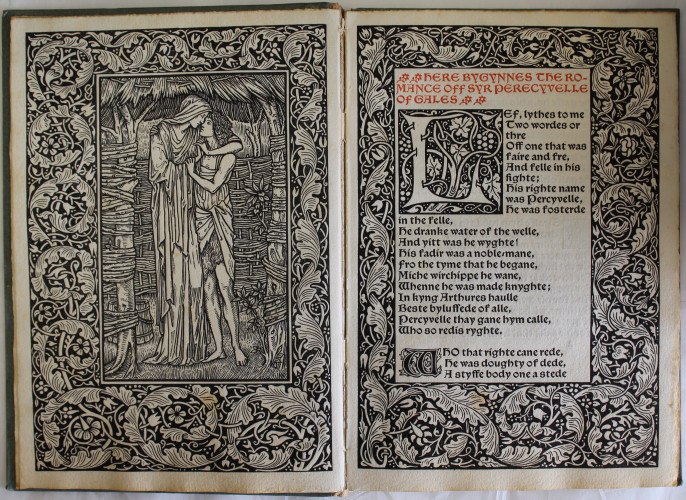 HERE BYGYNNES THE RO-
MANCE OFF SYR PERECYVELLE
OF GALES
LEF, lythes to me
Two wordes or
thre
Off one that was
faire and fre,
And felle in his
fighte;
His righte name
was Percyvelle,
He was fosterde
in the felle,
He dranke water of the welle,
And yitt was he wyghte!
His fadir was a noble mane,
Fro the tyme that he begane,
Miche wirchippe he wane,
Whenne he was made knyghte;
In kyng Arthures haulle
Beste byluffede of alle,
Percyvelle thay gane hym calle,
Who so redis ryghte.
WHO that righte cane rede,
He was doughty of dede,
A styffe body one a stede